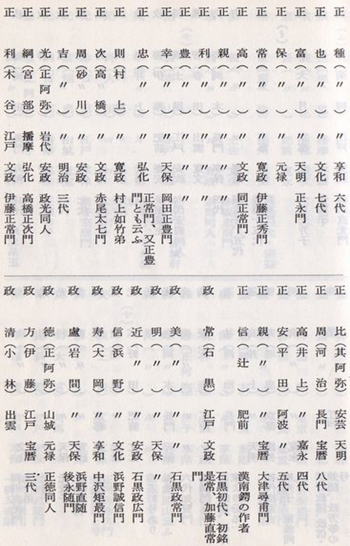 正 種(〃) 〃 享和 六代
正 也(〃) 〃 文化 七代
正 富(〃) 〃 天明 正永門
正 保(〃) 〃 元禄
正 常(〃) 〃 寛政 伊藤正秀門
正 高(〃) 〃 文政 同正常門
正 親(〃) 〃 〃 〃
正 利(〃) 〃 〃 〃
正 豊(〃) 〃 〃 〃
正 幸(〃) 〃 天保 岡田正豊門
正 忠(〃) 〃 弘化 正常門、又正豊
門とも云ふ
正 則(村上) 〃 寛政 村上如竹弟
正 次(高橋) 〃 文政 赤尾太七門
正 周(砂川) 〃 安政
正 吉(〃) 〃 明治 三代
正 光(正阿弥) 岩代 安政 政光同人
正 綱(宮部) 播摩 弘化 高橋正次門
正 利(木谷) 江戸 文政 伊藤正常門
正 比(其阿弥) 安芸 天明
正 周(河治) 長門 宝暦 八代
正 高(井上) 〃 嘉永 四代
正 安(平田) 阿波 〃 五代
正 親(〃) 〃 宝暦 大津尋甫門
正 信(辻) 肥前 漢南鐔の作者
政 常(石黒) 江戸 文政 石黒初代、初銘
是常、加藤直常
門
政 美(〃) 〃 〃 石黒政常門
政 明(〃) 〃 天保 〃
政 近(〃) 〃 安政 石黒政広門
政 信(浜野) 〃 文化 浜野誠信門
政 寿(大岡) 〃 享和 中沢矩最門
政 盧(岩間) 〃 天保 浜野直随
後永随門
政 徳(正阿弥) 山城 元禄 正徳同人
政 方(伊藤) 江戸 宝暦 三代
政 清(小林) 出雲